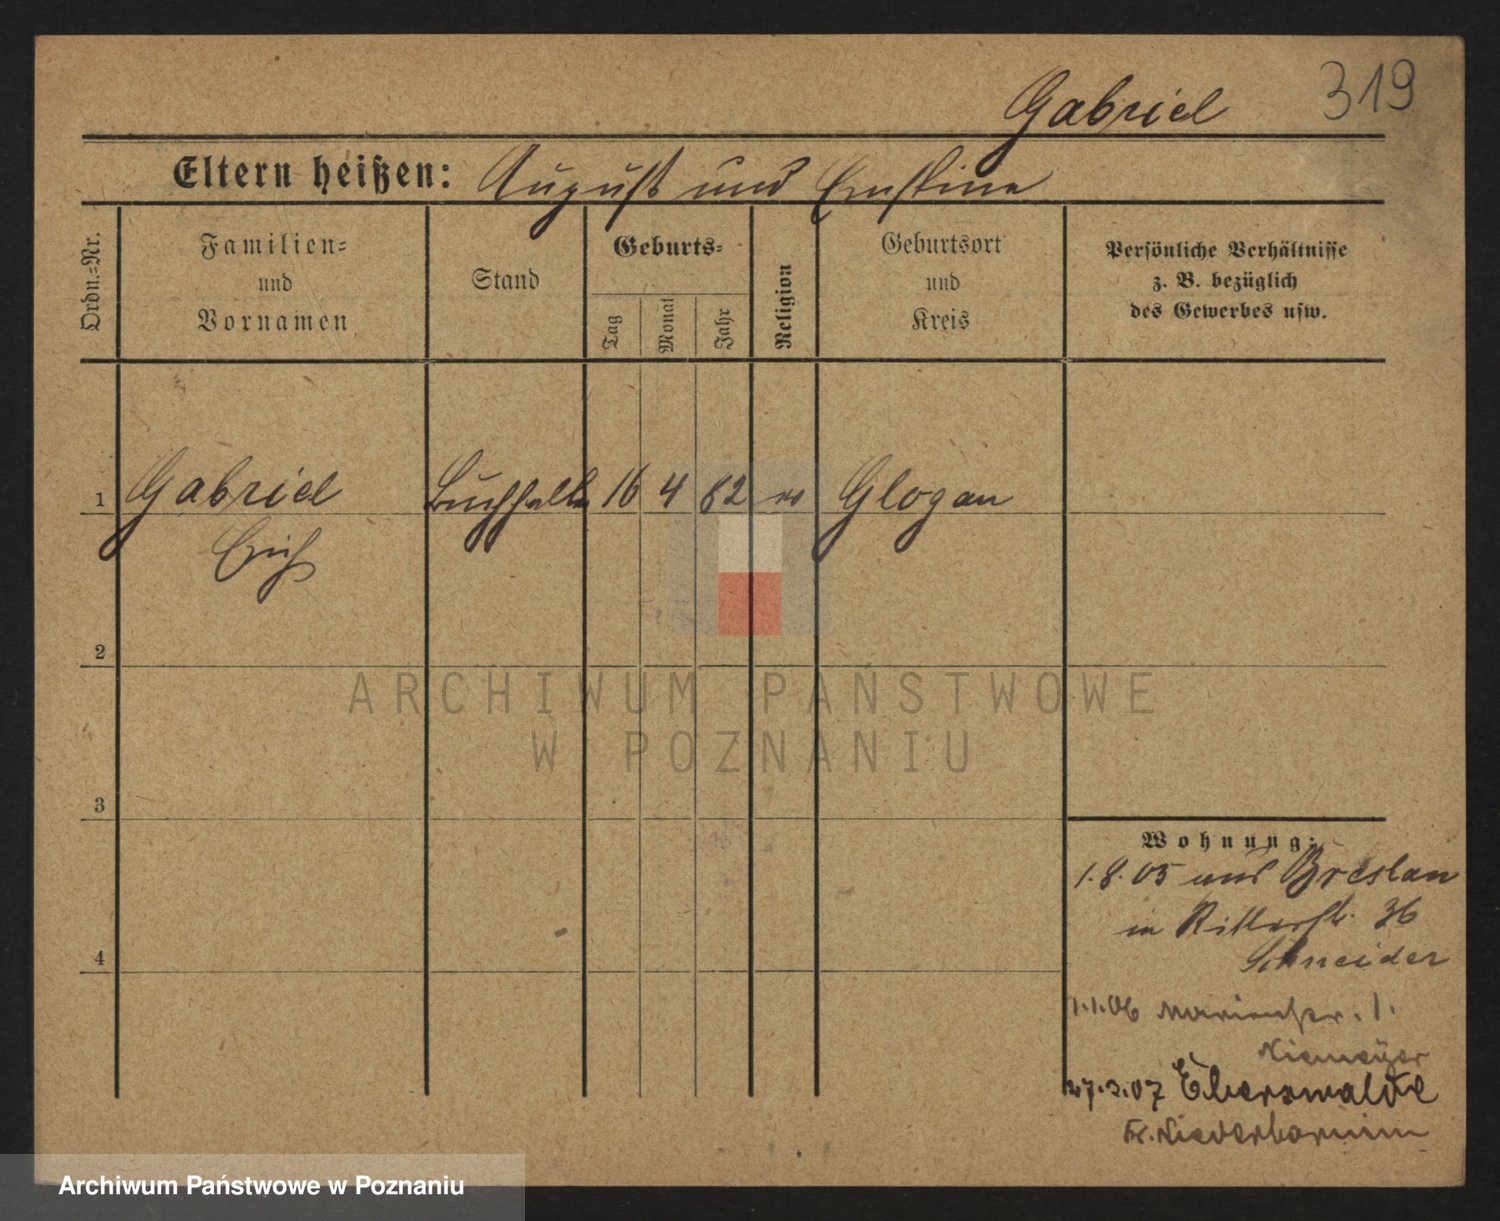 319
Gabriel
Eltern heißen: August und Ernstine
Ordn.-Nr.
Familien-
und
Vornamen
Stand
Geburts-
Tag
Monat
Jahr
Religion
Geburtsort
und
Kreis
Persönliche Verhältnisse
z. B. bezüglich
des Gewerbes usw.
1 Gabriel Buchhalter 16 4 82 ev Glogau
Erich
2
3
4
Wohnung:
1.8.05 aus Breslau
in Ritterstr. 36
Schneider
1.1.06 Marienstr. 1.
Niemeyer
27.3.07 Eberswalde
Kr. Niederbarnim
ARCHIWUM PAŃSTWOWE
W POZNANIU
Archiwum Państwowe w Poznaniu